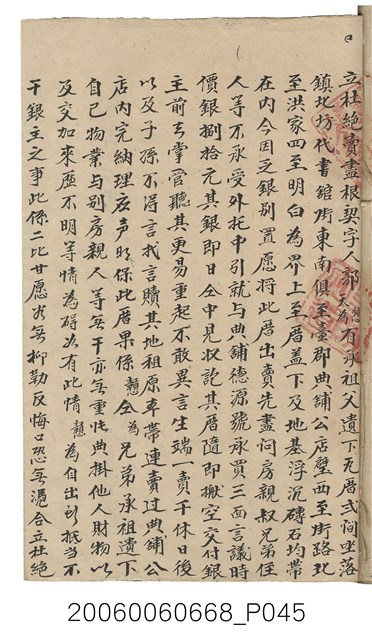 立杜絕賣盡根契字人郭天為有承祖父遺下瓦厝弍间坐落
鎮北坊代書館街東南俱至臺郡典舖公店壁西至街路北
至洪家四至明白為界上至厝蓋下及地基浮沉磚石均帶
在内今因乏銀别置愿將此厝出賣先盡问房親叔兄弟侄
人等不承受外托中引就与典舖德源號承買三面言議時
價銀捌拾元其銀即日仝中見収訖其厝隨即搬空交付銀
主前去掌管聽其更易重起不敢異言生端一賣千休日後
以及子孫不得言找言贖其地租原車帶連賣过典舖公
店内完納理庒声明保此厝果係 仝為兄弟承祖遺下
自己物業与别房親人等無干亦無重張典掛他人財物以
及交加來歷不明等情為碍如有此情 為自出頭抵当不
干銀主之事此係二比甘愿各無抑勒反悔口恐無凴合立杜絕
20060060668_P045